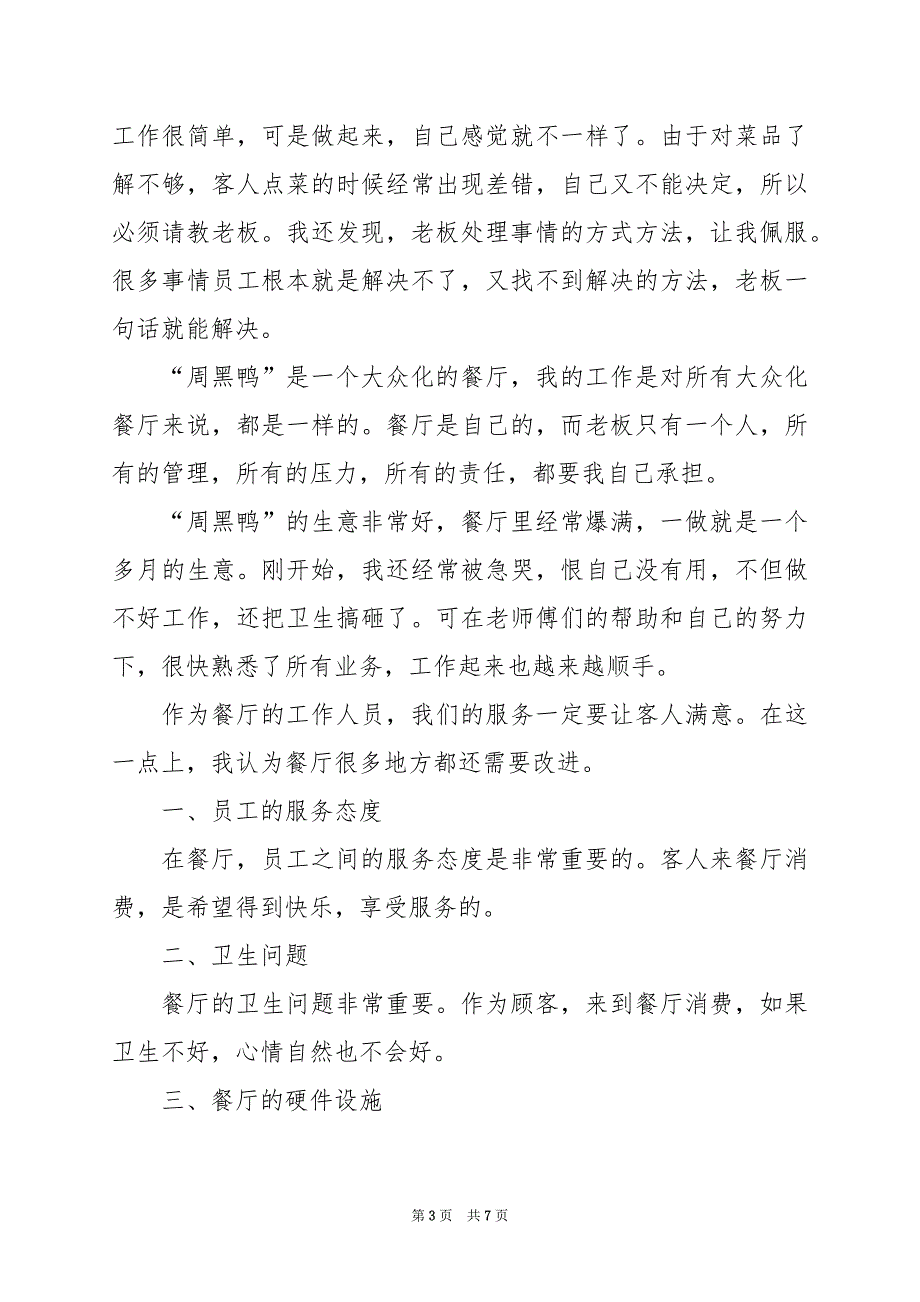 工作很简单，可是做起来，自己感觉就不一样了。由于对菜品了
解不够，客人点菜的时候经常出现差错，自己又不能决定，所以
必须请教老板。我还发现，老板处理事情的方式方法，让我佩服。
很多事情员工根本就是解决不了，又找不到解决的方法，老板一
句话就能解决。
“周黑鸭”是一个大众化的餐厅，我的工作是对所有大众化
餐厅来说，都是一样的。餐厅是自己的，而老板只有一个人，所
有的管理，所有的压力，所有的责任，都要我自己承担。
“周黑鸭”的生意非常好，餐厅里经常爆满，一做就是一个
多月的生意。刚开始，我还经常被急哭，恨自己没有用，不但做
不好工作，还把卫生搞砸了。可在老师傅们的帮助和自己的努力
下，很快熟悉了所有业务，工作起来也越来越顺手。
作为餐厅的工作人员，我们的服务一定要让客人满意。在这
一点上，我认为餐厅很多地方都还需要改进。
一、员工的服务态度
在餐厅，员工之间的服务态度是非常重要的。客人来餐厅消
费，是希望得到快乐，享受服务的。
二、卫生问题
餐厅的卫生问题非常重要。作为顾客，来到餐厅消费，如果
卫生不好，心情自然也不会好。
三、餐厅的硬件设施
第 3 页 共 7 页